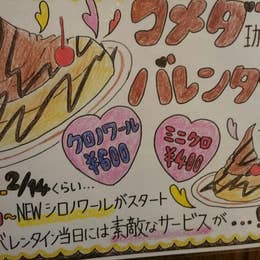 コメダ珈
バレンタ
クロノワール
¥600
ミニクロ
¥400
2/14くらい...
〜NEWシロノワールがスタート
バレンタイン当日には素敵なサービスが...!